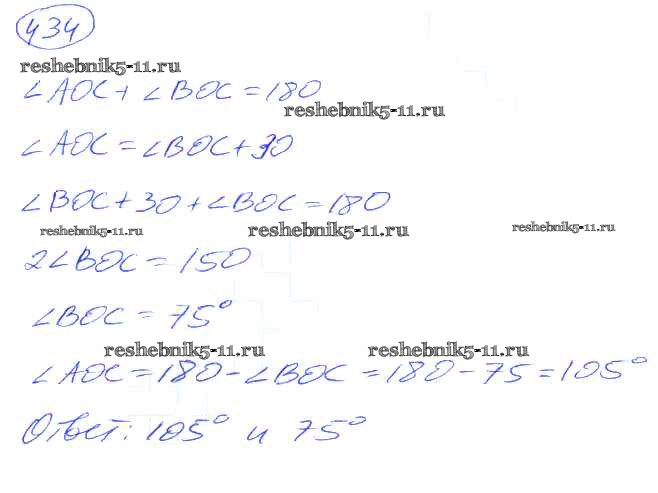 434
reshebnik5-11.ru
∠AOC + ∠BOC = 180
reshebnik5-11.ru
∠AOC = ∠BOC + 30
∠BOC + 30 + ∠BOC = 180
reshebnik5-11.ru reshebnik5-11.ru reshebnik5-11.ru
2∠BOC = 150
∠BOC = 75°
reshebnik5-11.ru reshebnik5-11.ru
∠AOC = 180 - ∠BOC = 180 - 75 = 105°
Ответ: 105° и 75°